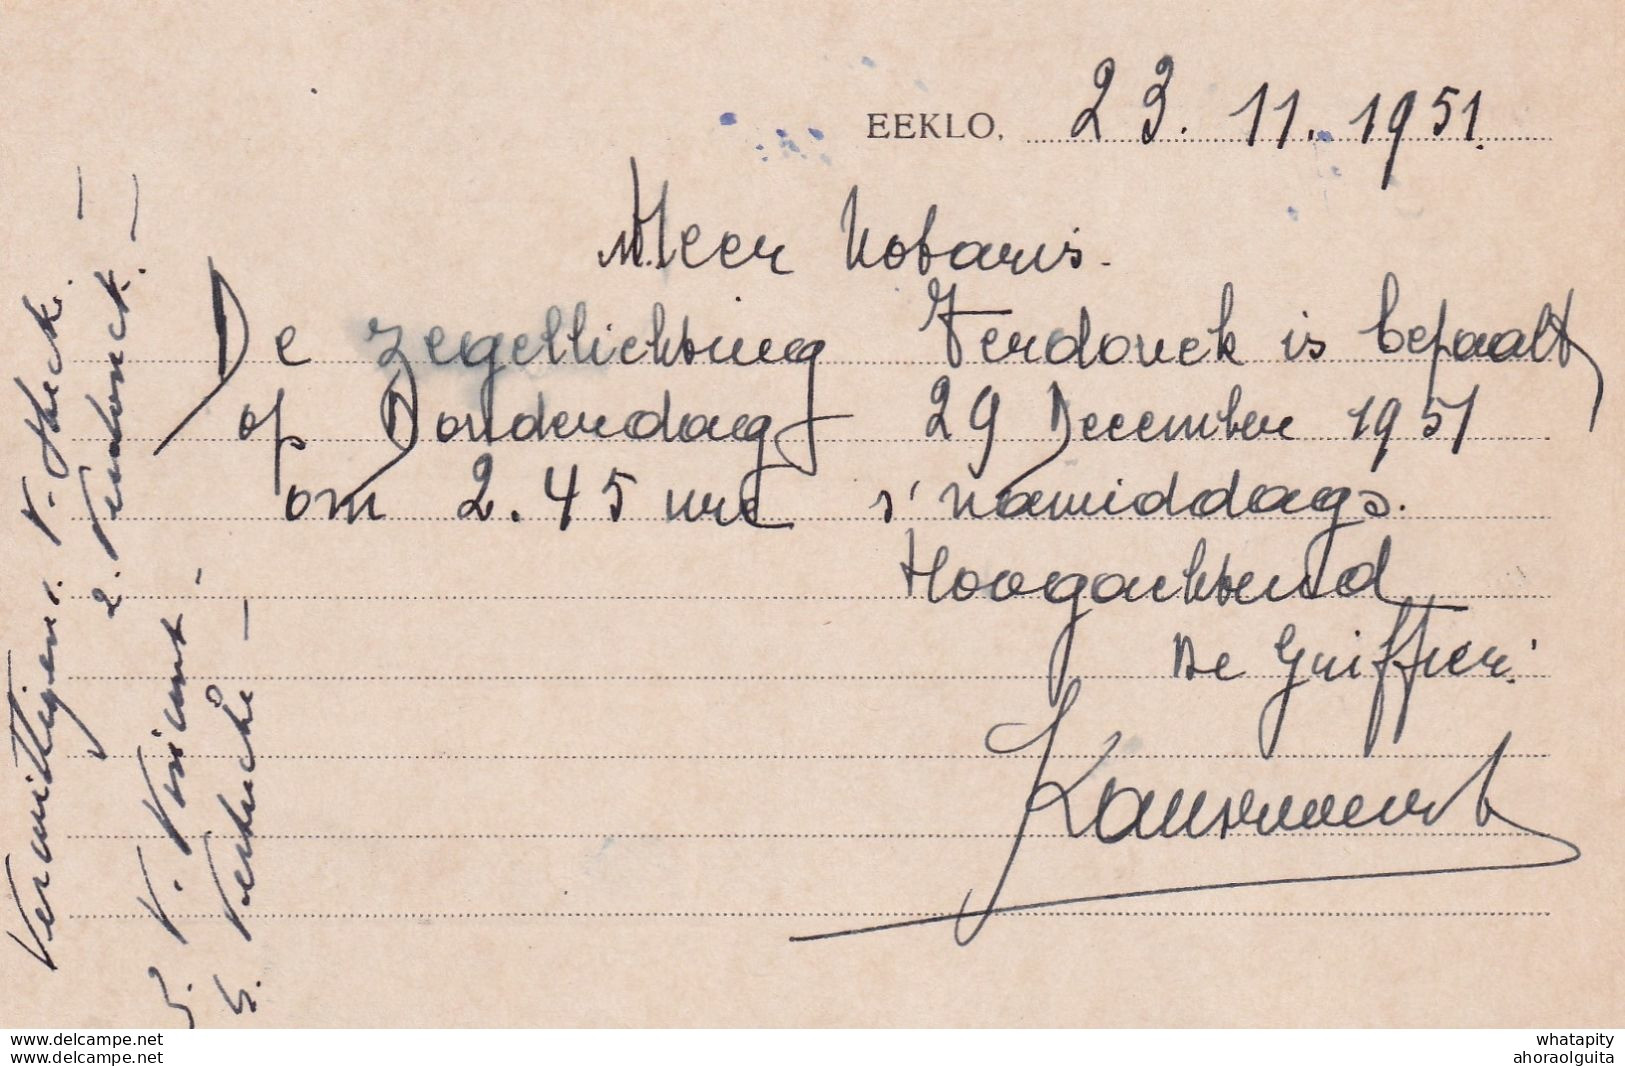 EEKLO, 23. 11. 1951.
Meer Notaris.
De zegellichting Verdonck is bepaalt
op Donderdag 29 December 1951
om 2.45 ure s' namiddags.
Hoogachtend
De Griffier.
Verwittigen:
2. Verdonck.
whatapity
ahoraolguita